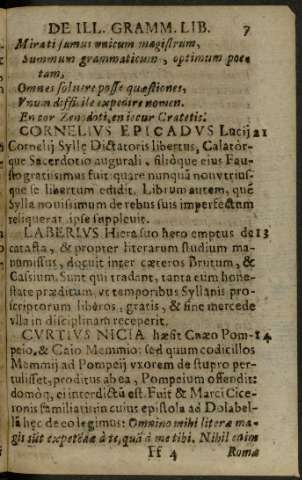 DE ILL. GRAMM. LIB. 7
Mirati sumus vnicum magistrum,
Summum grammaticum, optimum poe-
tam,
Omnes soluere posse quæstiones,
Vnum difficile expedire nomen.
En cor Zenodoti, en iecur Cratetis.
CORNELIVS EPICADVS Lucij 21
Cornelij Syllę Dictatoris libertus, Calatór-
que Sacerdotio augurali, filióque eius Fau-
sto gratissimus fuit quare nunquā non vtrius-
que se libertum edidit. Librum autem, quē
Sylla nouissimum de rebus suis imperfectum
reliquerat, ipse suppleuit.
LABERIVS Hiera suo hero emptus de 13
catasta, & propter literarum studium ma-
numissus, docuit inter cæteros Brutum, &
Cassium. Sunt qui tradant, tanta eum hone-
state præditum, vt temporibus Syllanis pro-
scriptorum liberos, gratis, & sine mercede
vlla in disciplinam receperit.
CVRTIVS NICIA hæsit Cnæo Pom- 14
peio, & Caio Memmio: sed quum codicillos
Memmij ad Pompeij vxorem de stupro per-
tulisset, proditus ab ea, Pompeium offendit:
domóq, ei interdictū est. Fuit & Marci Cice-
ronis familiaris: in cuius epistola ad Dolabel-
lā hęc de eo legimus: Omnino mihi literæ ma-
gis sūt expetēdæ à te, quā à me tibi. Nihil enim
Ff 4 Romæ